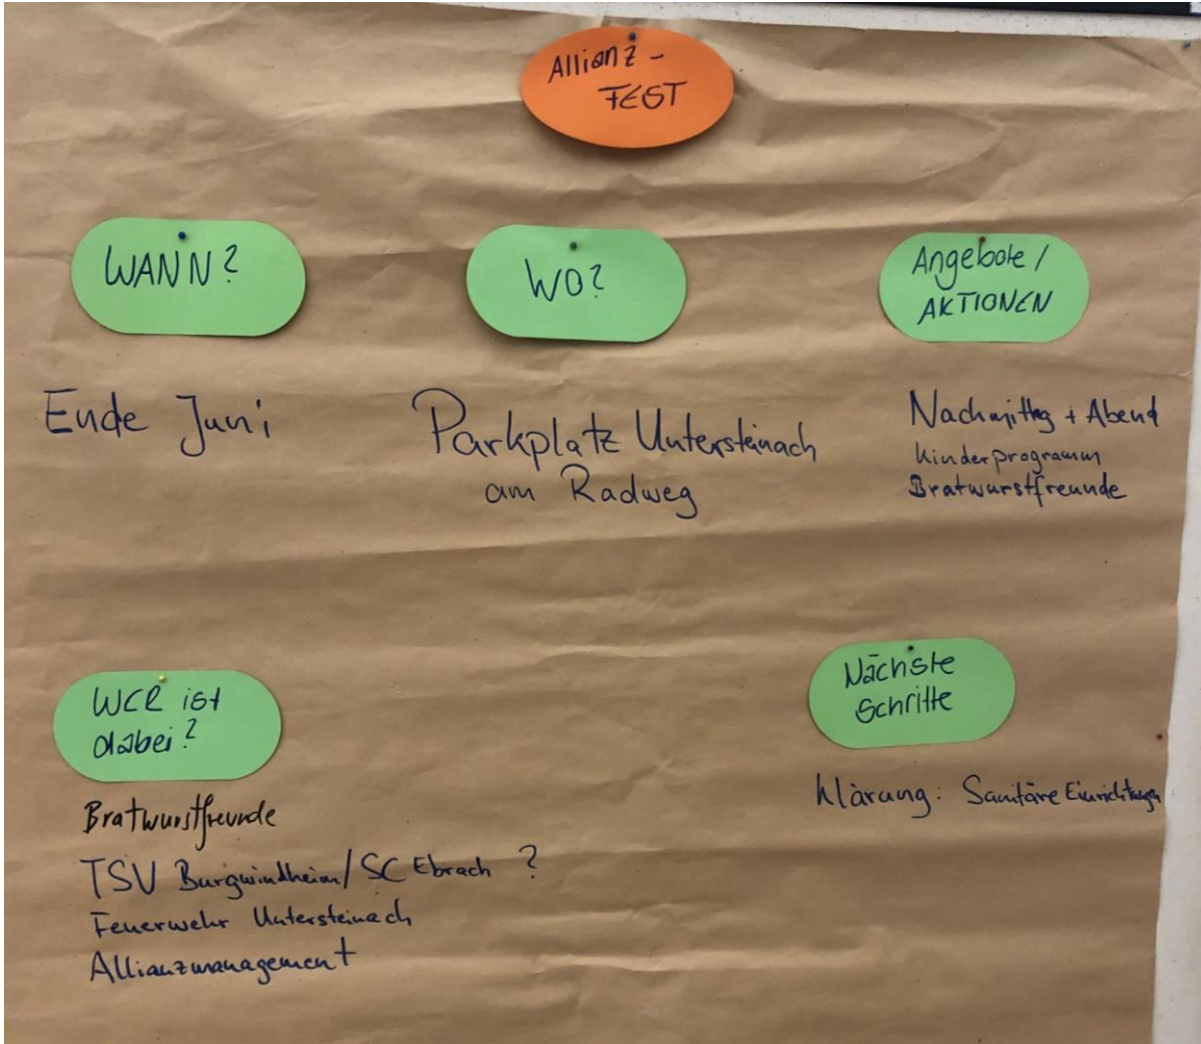 Allianz -
FEST
WANN?
WO?
Angebote /
AKTIONEN
Ende Juni
Parkplatz Untersteinach
am Radweg
Nachmittag + Abend
Kinderprogramm
Bratwurstfreunde
WER ist
dabei?
Bratwurstfreunde
TSV Burgwindheim/SC Ebrach ?
Feuerwehr Untersteinach
Allianzmanagement
Nächste
Schritte
Klärung: Sanitäre Einrichtungen